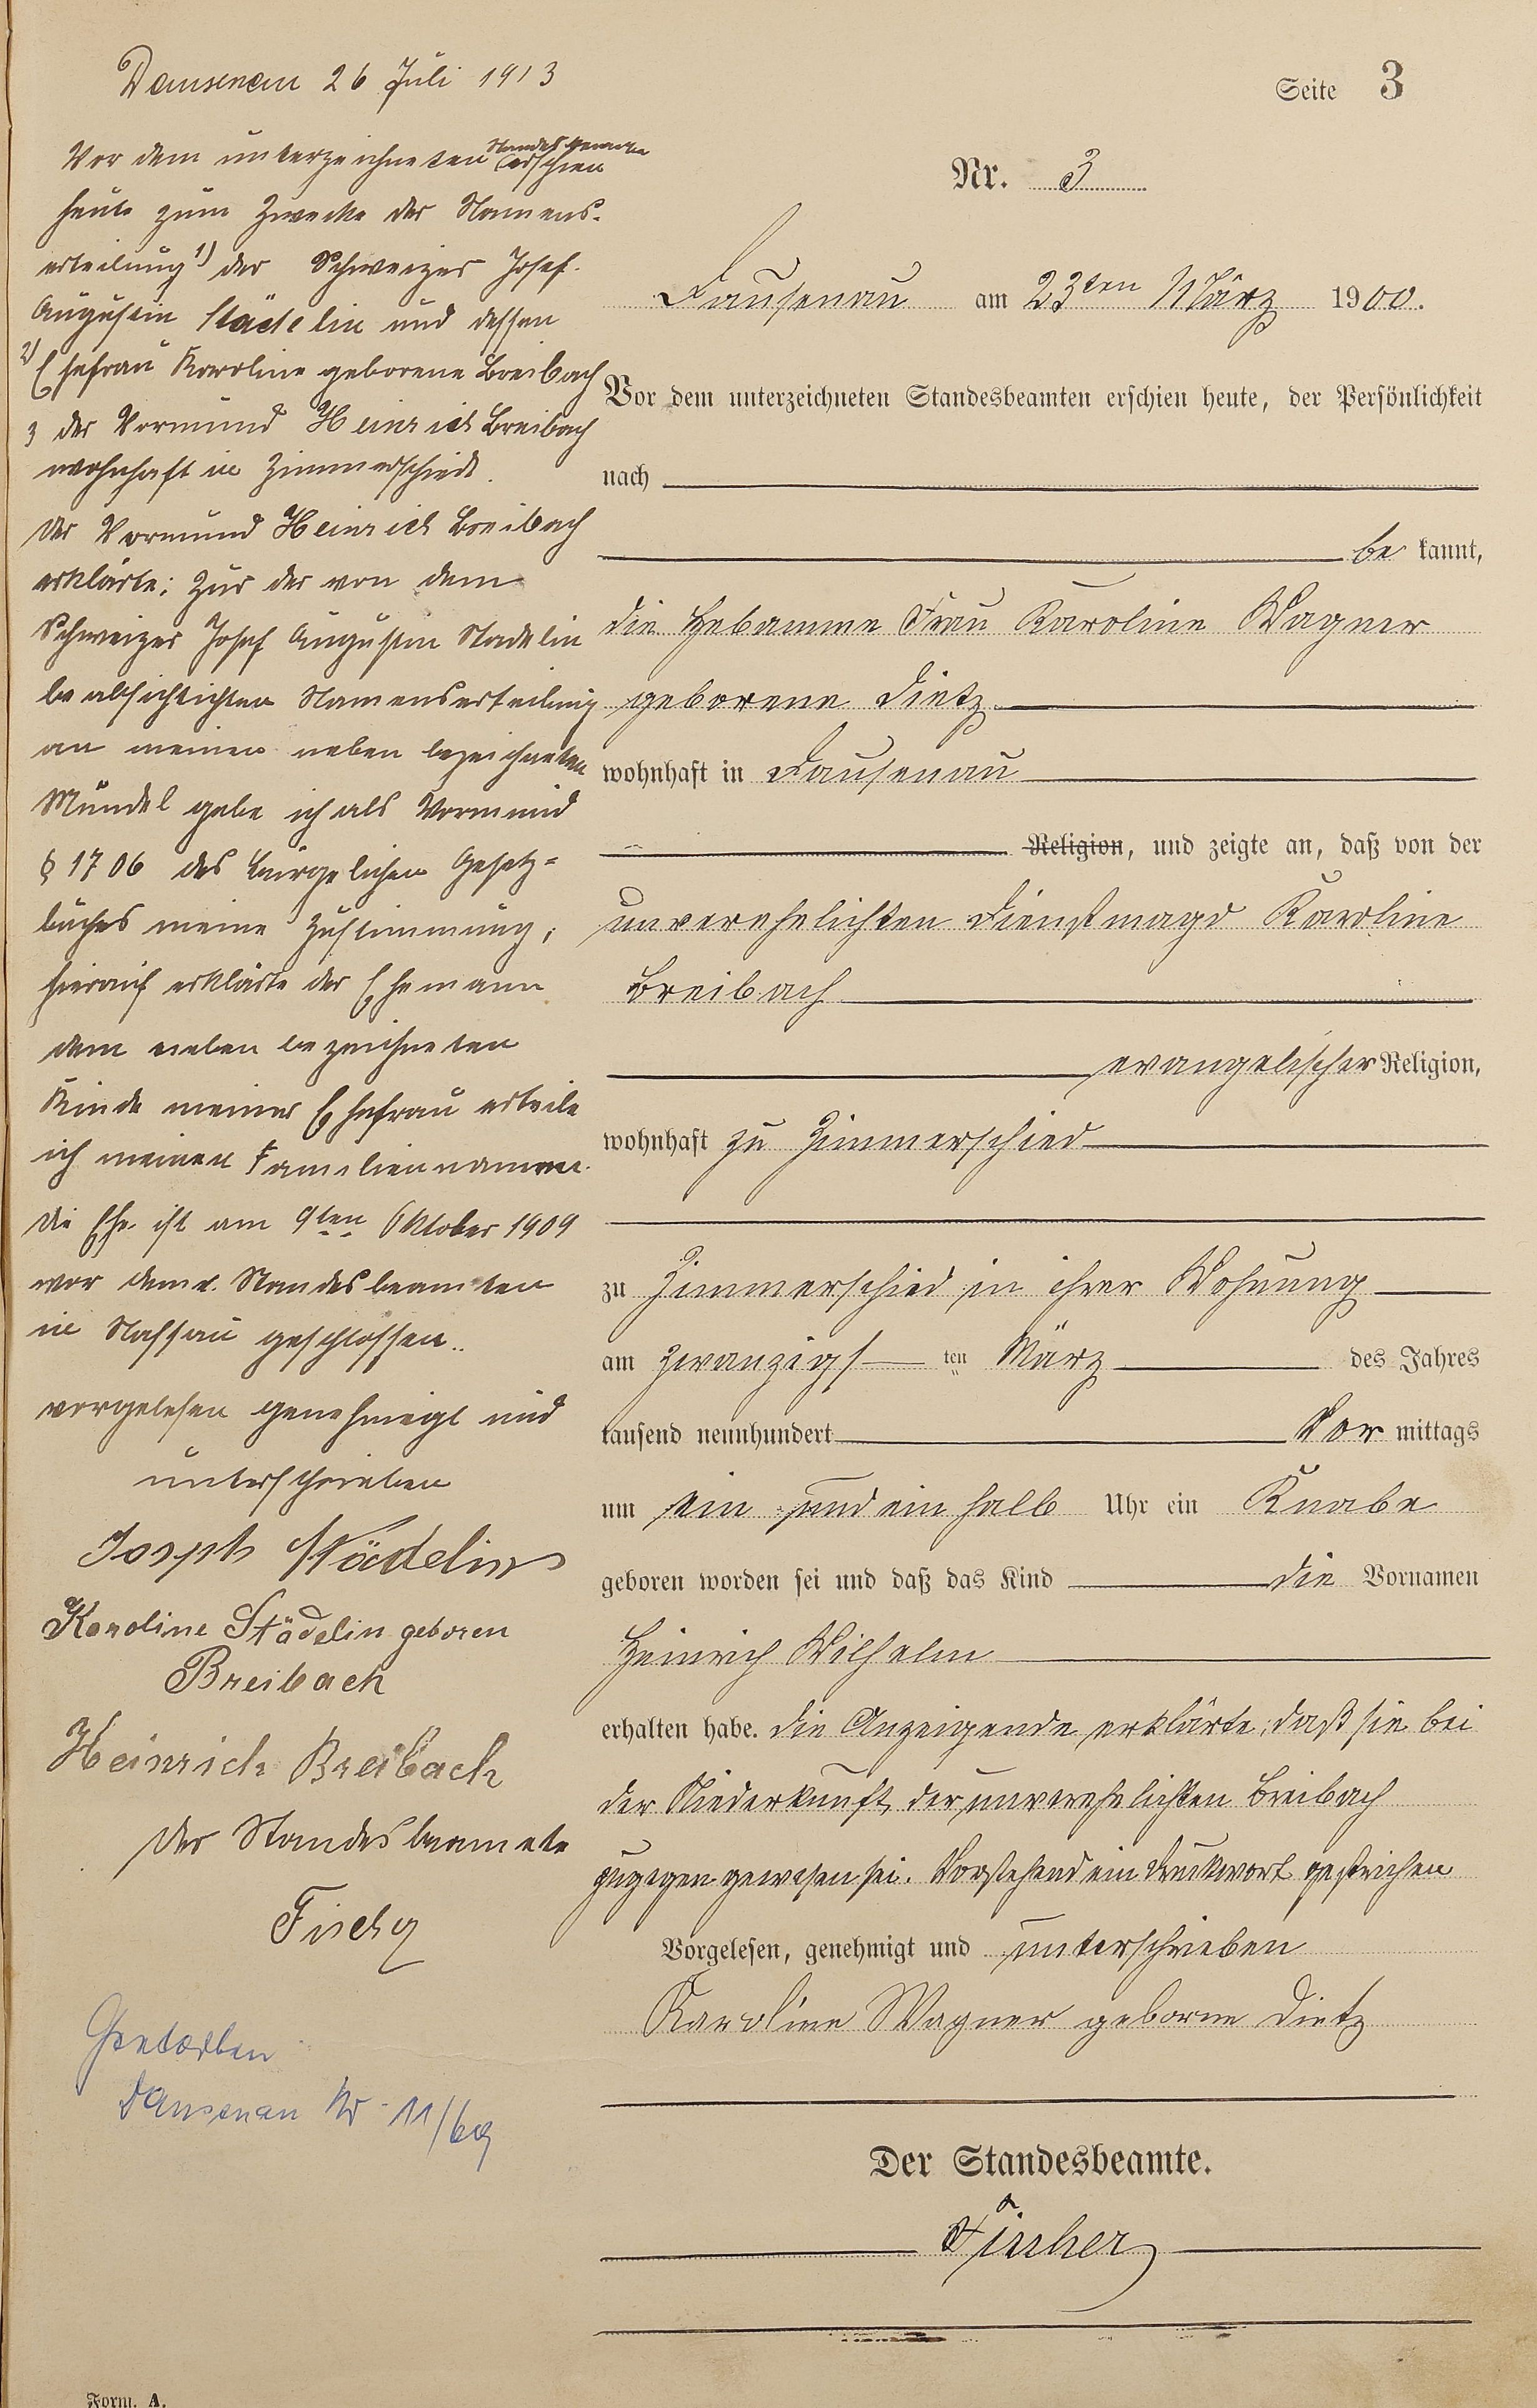 Dausenau 26 Juli 1913
Vor dem unterzeichneten Standesbeamten erschien
heute zum Zwecke der Namens-
erteilung 1) der Schweizer Josef
Augustin Städelin und dessen
2) Ehefrau Karoline geborene Breibach
3 der Vormund Heinrich Breibach
wohnhaft in Zimmerschied.
Der Vormund Heinrich Breibach
erklärte: Zur der von dem
Schweizer Josef Augustin Stadelin
beabsichtichten Namenserteilung
an meinen neben bezeichneten
Mündel gebe ich als Vormund
§ 1706 des bürgelichen Gesetz=
buches meine Zustimmung;
hierauf erklärte der Ehemann
dem neben bezeichneten
Kinde meiner Ehefrau erteile
ich meinen Familiennamen.
Die Ehe ist am 9ten Oktober 1909
vor dem Standesbeamten
in Nassau geschlossen..
vorgelesen genehmigt und
unterschrieben
Joseph Städelin
Karoline Städelin geboren
Breibach
Heinrich Breibach
Der Standesbeamte
Fischer
Gestorben
Dausenau Nr 11/69
Form. A.
Seite 3
Nr. 3
Dausenau am 23ten März 1900.
Vor dem unterzeichneten Standesbeamten erschien heute, der Persönlichkeit
nach
be kannt,
die Hebamme Frau Karoline Wagner
geborene Dietz
wohnhaft in Dausenau
Religion, und zeigte an, daß von der
unverehelichten Dienstmagd Karoline
Breibach
evangelischer Religion,
wohnhaft zu Zimmerschied
zu Zimmerschied in ihrer Wohnung
am zwanzigs ten März des Jahres
tausend neunhundert Vor mittags
um ein und ein halb Uhr ein Knabe
geboren worden sei und daß das Kind die Vornamen
Heinrich Wilhelm
erhalten habe. Die Anzeigende erklärte, daß sie bei
der Niederkunft der unverehelichten Breibach
zugegen gewesen sei. Vorstehend ein Druckwort gestrichen
Vorgelesen, genehmigt und unterschrieben
Karoline Wagner geborne Dietz
Der Standesbeamte.
Fischer